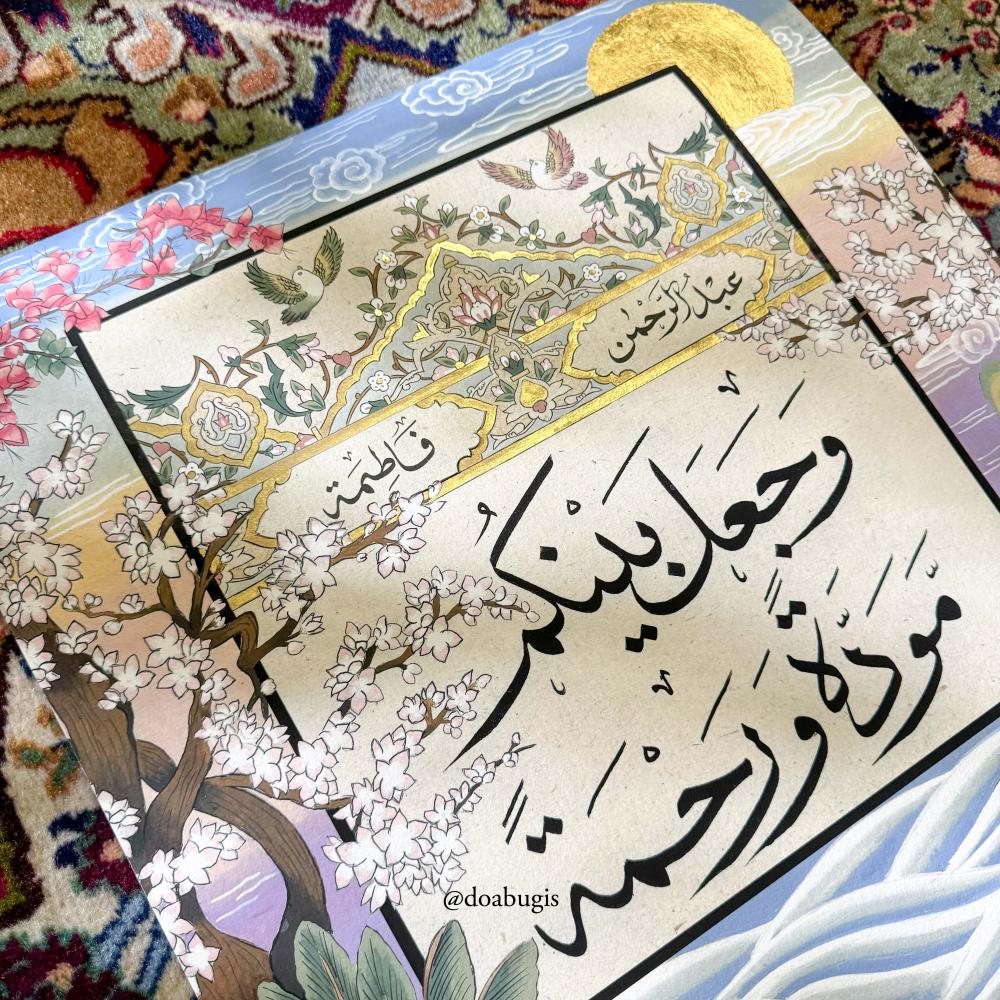 عَبْدُ الرَّحْمٰن
فَاطِمَة
وَجَعَلَ بَيْنَكُمْ
مَّوَدَّةً وَرَحْمَةً
@doabugis